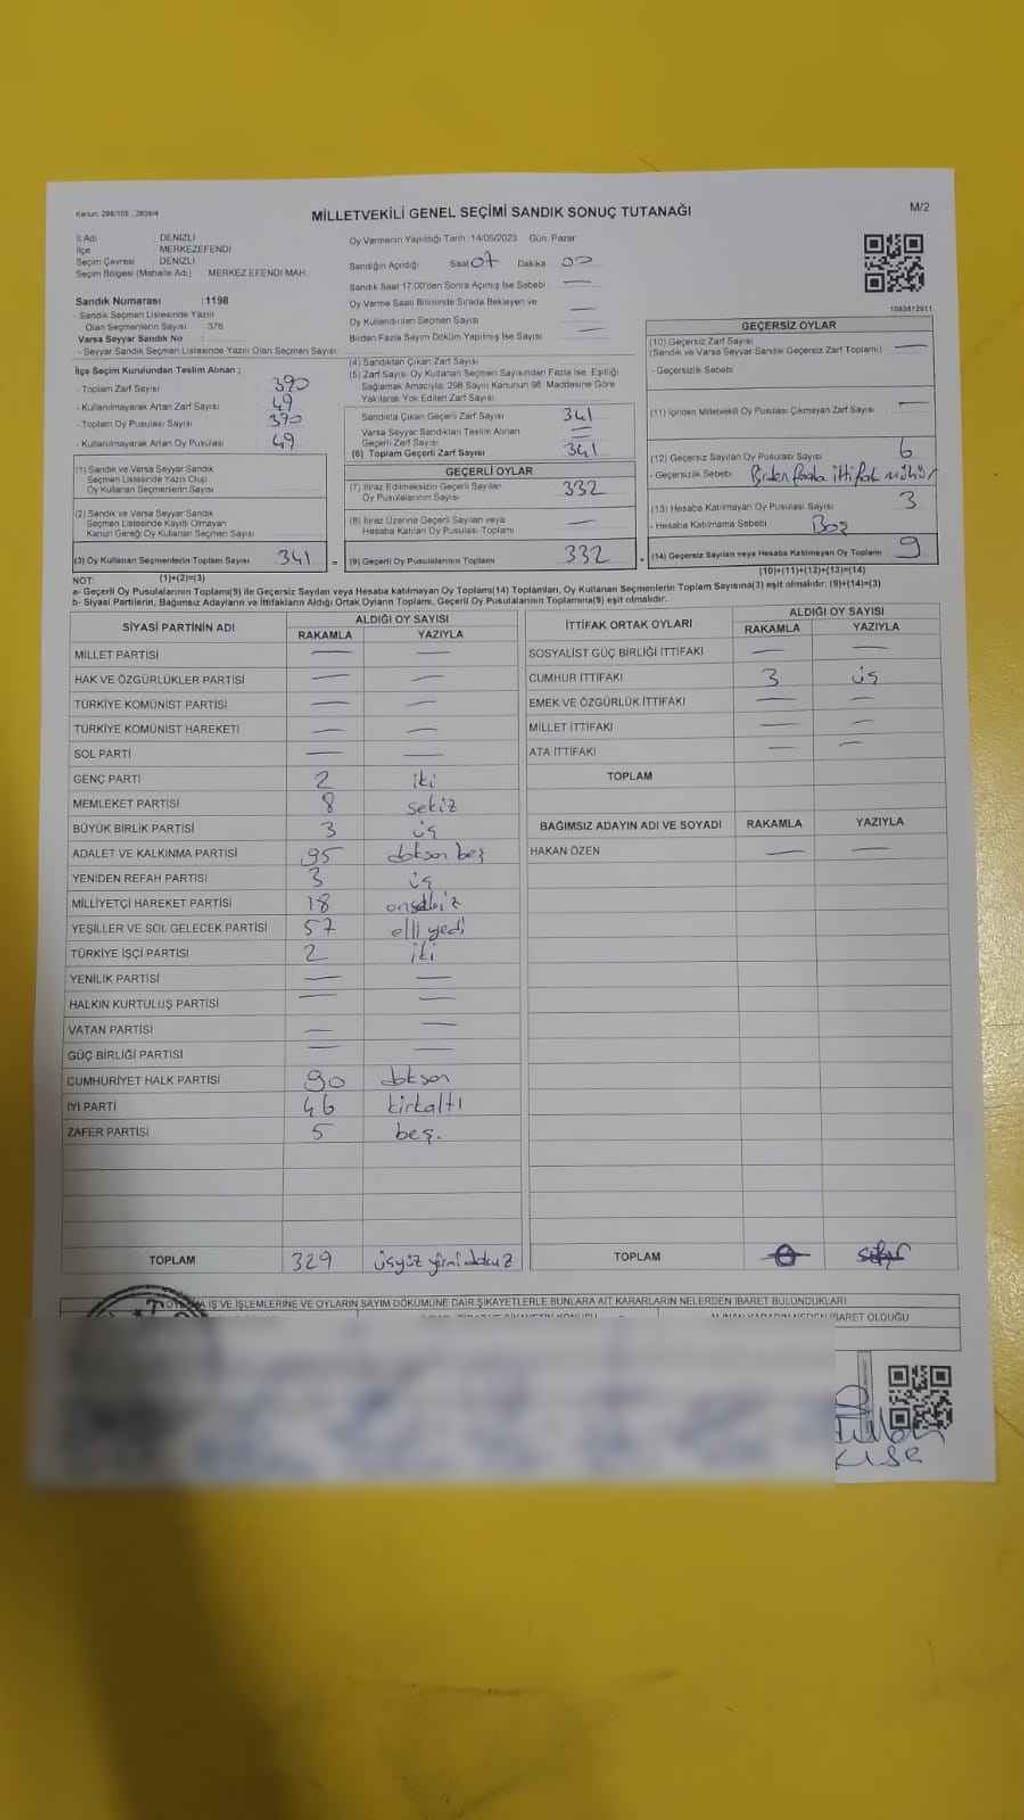 MİLLETVEKİLİ GENEL SEÇİMİ SANDIK SONUÇ TUTANAĞI
M/2
İl Adı DENİZLİ
İlçe MERKEZEFENDİ
Seçim Çevresi DENİZLİ
Seçim Bölgesi (Mahalle Adı) MERKEZ EFENDİ MAH.
Oy Vermenin Yapıldığı Tarih :14/05/2023 Gün: Pazar
Sandığın Açıldığı Saat 07 Dakika 00
Sandık Saat 17.00'den Sonra Açılmış İse Sebebi —
Oy Verme Saati Bitiminde Sırada Bekleyen ve
Oy Kullandırılan Seçmen Sayısı —
Birden Fazla Sayım Döküm Yapılmış İse Sayısı —
Sandık Numarası :1198
- Sandık Seçmen Listesinde Yazılı
Olan Seçmenlerin Sayısı : 376
Varsa Seyyar Sandık No :
- Seyyar Sandık Seçmen Listesinde Yazılı Olan Seçmen Sayısı:
İlçe Seçim Kurulundan Teslim Alınan ;
- Toplam Zarf Sayısı 390
- Kullanılmayarak Artan Zarf Sayısı 49
- Toplam Oy Pusulası Sayısı 390
- Kullanılmayarak Artan Oy Pusulası 49
(1) Sandık ve Varsa Seyyar Sandık
Seçmen Listesinde Yazılı Olup
Oy Kullanan Seçmenlerin Sayısı
(2) Sandık ve Varsa Seyyar Sandık
Seçmen Listesinde Kayıtlı Olmayan
Kanun Gereği Oy Kullanan Seçmen Sayısı
(3) Oy Kullanan Seçmenlerin Toplam Sayısı 341
(1)+(2)=(3)
(4) Sandıktan Çıkan Zarf Sayısı
(5) Zarf Sayısı Oy Kullanan Seçmen Sayısından Fazla İse, Eşitliği
Sağlamak Amacıyla, 298 Sayılı Kanunun 98. Maddesine Göre
Yakılarak Yok Edilen Zarf Sayısı
Sandıkta Çıkan Geçerli Zarf Sayısı 341
Varsa Seyyar Sandıktan Teslim Alınan
Geçerli Zarf Sayısı —
(6) Toplam Geçerli Zarf Sayısı 341
GEÇERLİ OYLAR
(7) İtiraz Edilmeksizin Geçerli Sayılan
Oy Pusulalarının Sayısı 332
(8) İtiraz Üzerine Geçerli Sayılan veya
Hesaba Katılan Oy Pusulası Toplamı —
(9) Geçerli Oy Pusulalarının Toplamı 332
1083812911
GEÇERSİZ OYLAR
(10) Geçersiz Zarf Sayısı
(Sandık ve Varsa Seyyar Sandık Geçersiz Zarf Toplamı) —
- Geçersizlik Sebebi
(11) İçinden Milletvekili Oy Pusulası Çıkmayan Zarf Sayısı —
(12) Geçersiz Sayılan Oy Pusulası Sayısı 6
- Geçersizlik Sebebi Birden fazla ittifak mühür
(13) Hesaba Katılmayan Oy Pusulası Sayısı 3
- Hesaba Katılmama Sebebi Boş
(14) Geçersiz Sayılan veya Hesaba Katılmayan Oy Toplamı 9
(10)+(11)+(12)+(13)=(14)
NOT:
a- Geçerli Oy Pusulalarının Toplamı(9) ile Geçersiz Sayılan veya Hesaba katılmayan Oy Toplamı(14) Toplamları, Oy Kullanan Seçmenlerin Toplam Sayısına(3) eşit olmalıdır. (9)+(14)=(3)
b- Siyasi Partilerin, Bağımsız Adayların ve İttifakların Aldığı Ortak Oyların Toplamı, Geçerli Oy Pusulalarının Toplamına(9) eşit olmalıdır.
SİYASİ PARTİNİN ADI ALDIĞI OY SAYISI
RAKAMLA YAZIYLA
MİLLET PARTİSİ — —
HAK VE ÖZGÜRLÜKLER PARTİSİ — —
TÜRKİYE KOMÜNİST PARTİSİ — —
TÜRKİYE KOMÜNİST HAREKETİ — —
SOL PARTİ — —
GENÇ PARTİ 2 iki
MEMLEKET PARTİSİ 8 sekiz
BÜYÜK BİRLİK PARTİSİ 3 üç
ADALET VE KALKINMA PARTİSİ 95 doksan beş
YENİDEN REFAH PARTİSİ 3 üç
MİLLİYETÇİ HAREKET PARTİSİ 18 onsekiz
YEŞİLLER VE SOL GELECEK PARTİSİ 57 elli yedi
TÜRKİYE İŞÇİ PARTİSİ 2 iki
YENİLİK PARTİSİ — —
HALKIN KURTULUŞ PARTİSİ — —
VATAN PARTİSİ — —
GÜÇ BİRLİĞİ PARTİSİ — —
CUMHURİYET HALK PARTİSİ 90 doksan
İYİ PARTİ 46 kırkaltı
ZAFER PARTİSİ 5 beş.
TOPLAM 329 üçyüz yirmi dokuz
İTTİFAK ORTAK OYLARI ALDIĞI OY SAYISI
RAKAMLA YAZIYLA
SOSYALİST GÜÇ BİRLİĞİ İTTİFAKI — —
CUMHUR İTTİFAKI 3 üç
EMEK VE ÖZGÜRLÜK İTTİFAKI — —
MİLLET İTTİFAKI — —
ATA İTTİFAKI — —
TOPLAM
BAĞIMSIZ ADAYIN ADI VE SOYADI RAKAMLA YAZIYLA
HAKAN ÖZEN — —
TOPLAM 0 sıfır
İŞ VE İŞLEMLERİNE VE OYLARIN SAYIM DÖKÜMÜNE DAİR ŞİKAYETLERLE BUNLARA AİT KARARLARIN NELERDEN İBARET BULUNDUKLARI
İBARET OLDUĞU